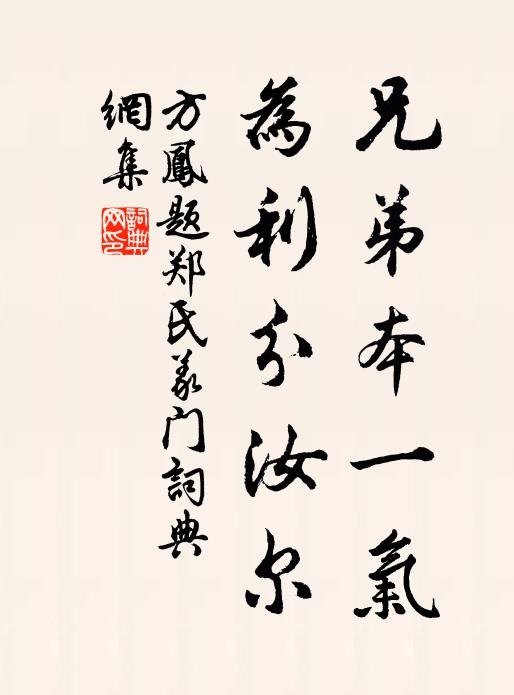 兄弟本一氣
為利分汝尔
方鳳題郑氏义门詞典
網集
詞典
网印